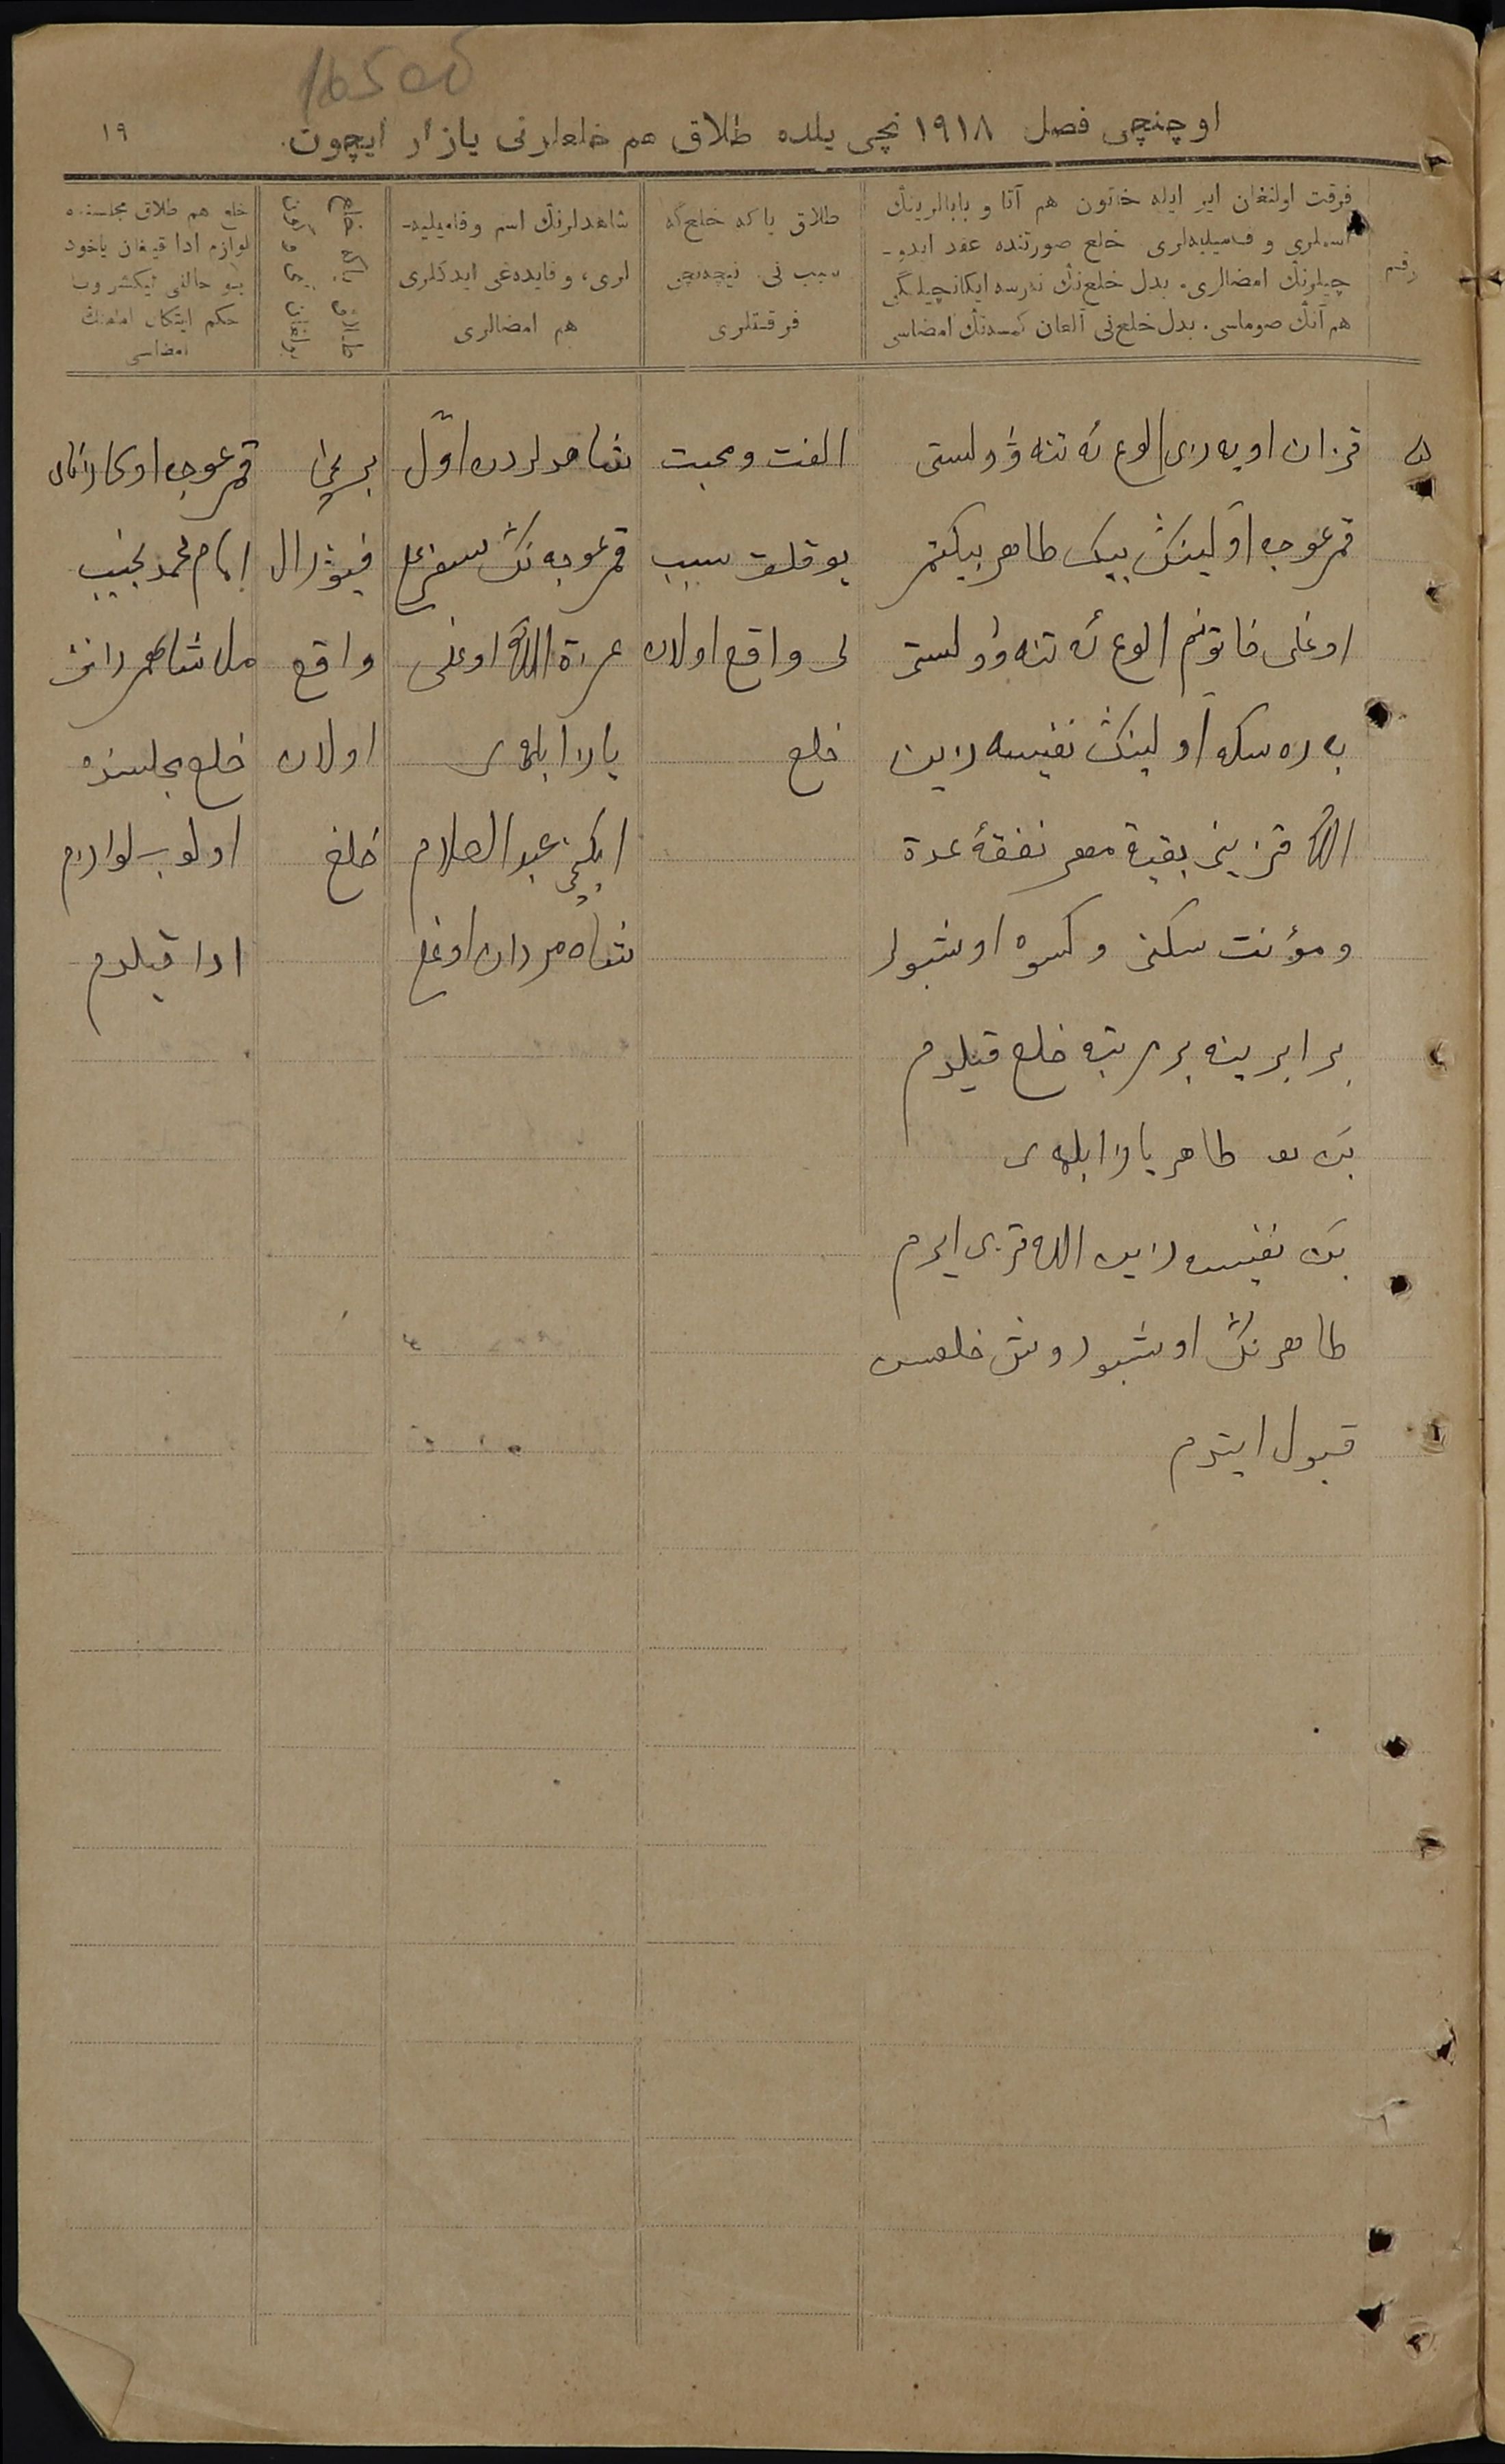 اوچنچی فصل ۱۹۱۸ نچی یلده طلاق هم خلعلرنی یازار ایچون.
۱۹
رقم
فرقت اولنغان ایر ایله خاتون هم آتا و بابالرینڭ
اسملری و فامیلیه‌لری خلع صورتنده عقد ایدو-
چیلرنڭ امضالری. بدل خلع‌نڭ نەرسه ایکانچیلگی
هم آنڭ صوماسی. بدل خلع‌نی آلغان کمسه‌نڭ امضاسی
طلاق یا که خلع‌گه
سبب نی. نیچه‌نچی
فرقتلری
شاهدلرنڭ اسم و فامیلیه-
لری، و فایده‌غی ایدکلری
هم امضالری
طلاق یاکه خلع
بولغان آی و کون
خلع هم طلاق مجلسنده
لوازم ادا قیلغان یاخود
بو حالنی تیکشروب
حکم ایتکان امامنڭ
امضاسی
۵
قزان اویازی الوع ئه‌تنه وۇلستی
قمرغوجه اۋلینڭ بیک طاهر بیکتمر
اوغلی خاتونم الوع ئه‌تنه وۇلستی
اۋلینڭ نفیسه زین
الله قزینی بقیۀ مهر نفقۀ عدة
و مؤنت سکنی و کسوه اوشبولر
برابرینه بر مرتبه خلع قیلدم
طاهر یازا بلمی
نفیسه زین الله قزی ایرم
طاهرنڭ اوشبو روش خلعسن
قبول ایتدم
الفت و محبت
یوقلق سبب
لی واقع اولان
خلع
شاهدلردن اوّل
قمرغوجه‌نڭ سفرعلی
الله اوغلی
یازا بلمی
ایکنچی عبد السلام
شاه مردان اوغلی
برنچی
فیۋرال
واقع
اولان
خلع
قمرغوجه اۋلی
امام محمد نجیب
خلع مجلسنده
اولوب لوازم
ادا قیلدم